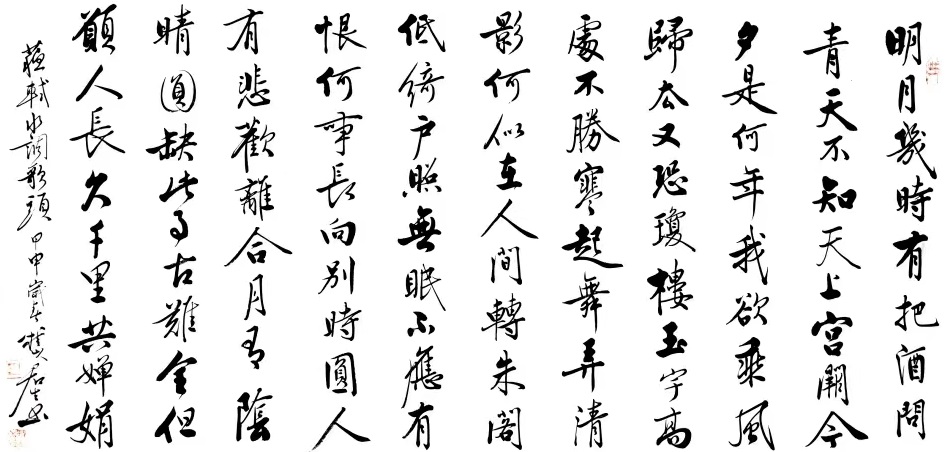 明月幾時有把酒問
青天不知天上宮闕今
夕是何年我欲乘風
歸去又恐瓊樓玉宇高
處不勝寒起舞弄清
影何似在人間轉朱閣
低綺户照無眠不應有
恨何事長向别時圓人
有悲歡離合月有陰
晴圓缺此事古難全但
願人長久千里共嬋娟
蘇軾水調歌頭甲申